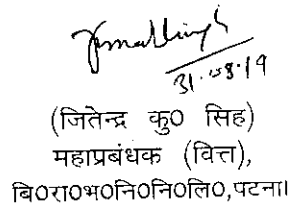 31.08.19
(जितेन्द्र कु0 सिंह)
महाप्रबंधक (वित्त),
बि0रा0भ0नि0नि0लि0,पटना।